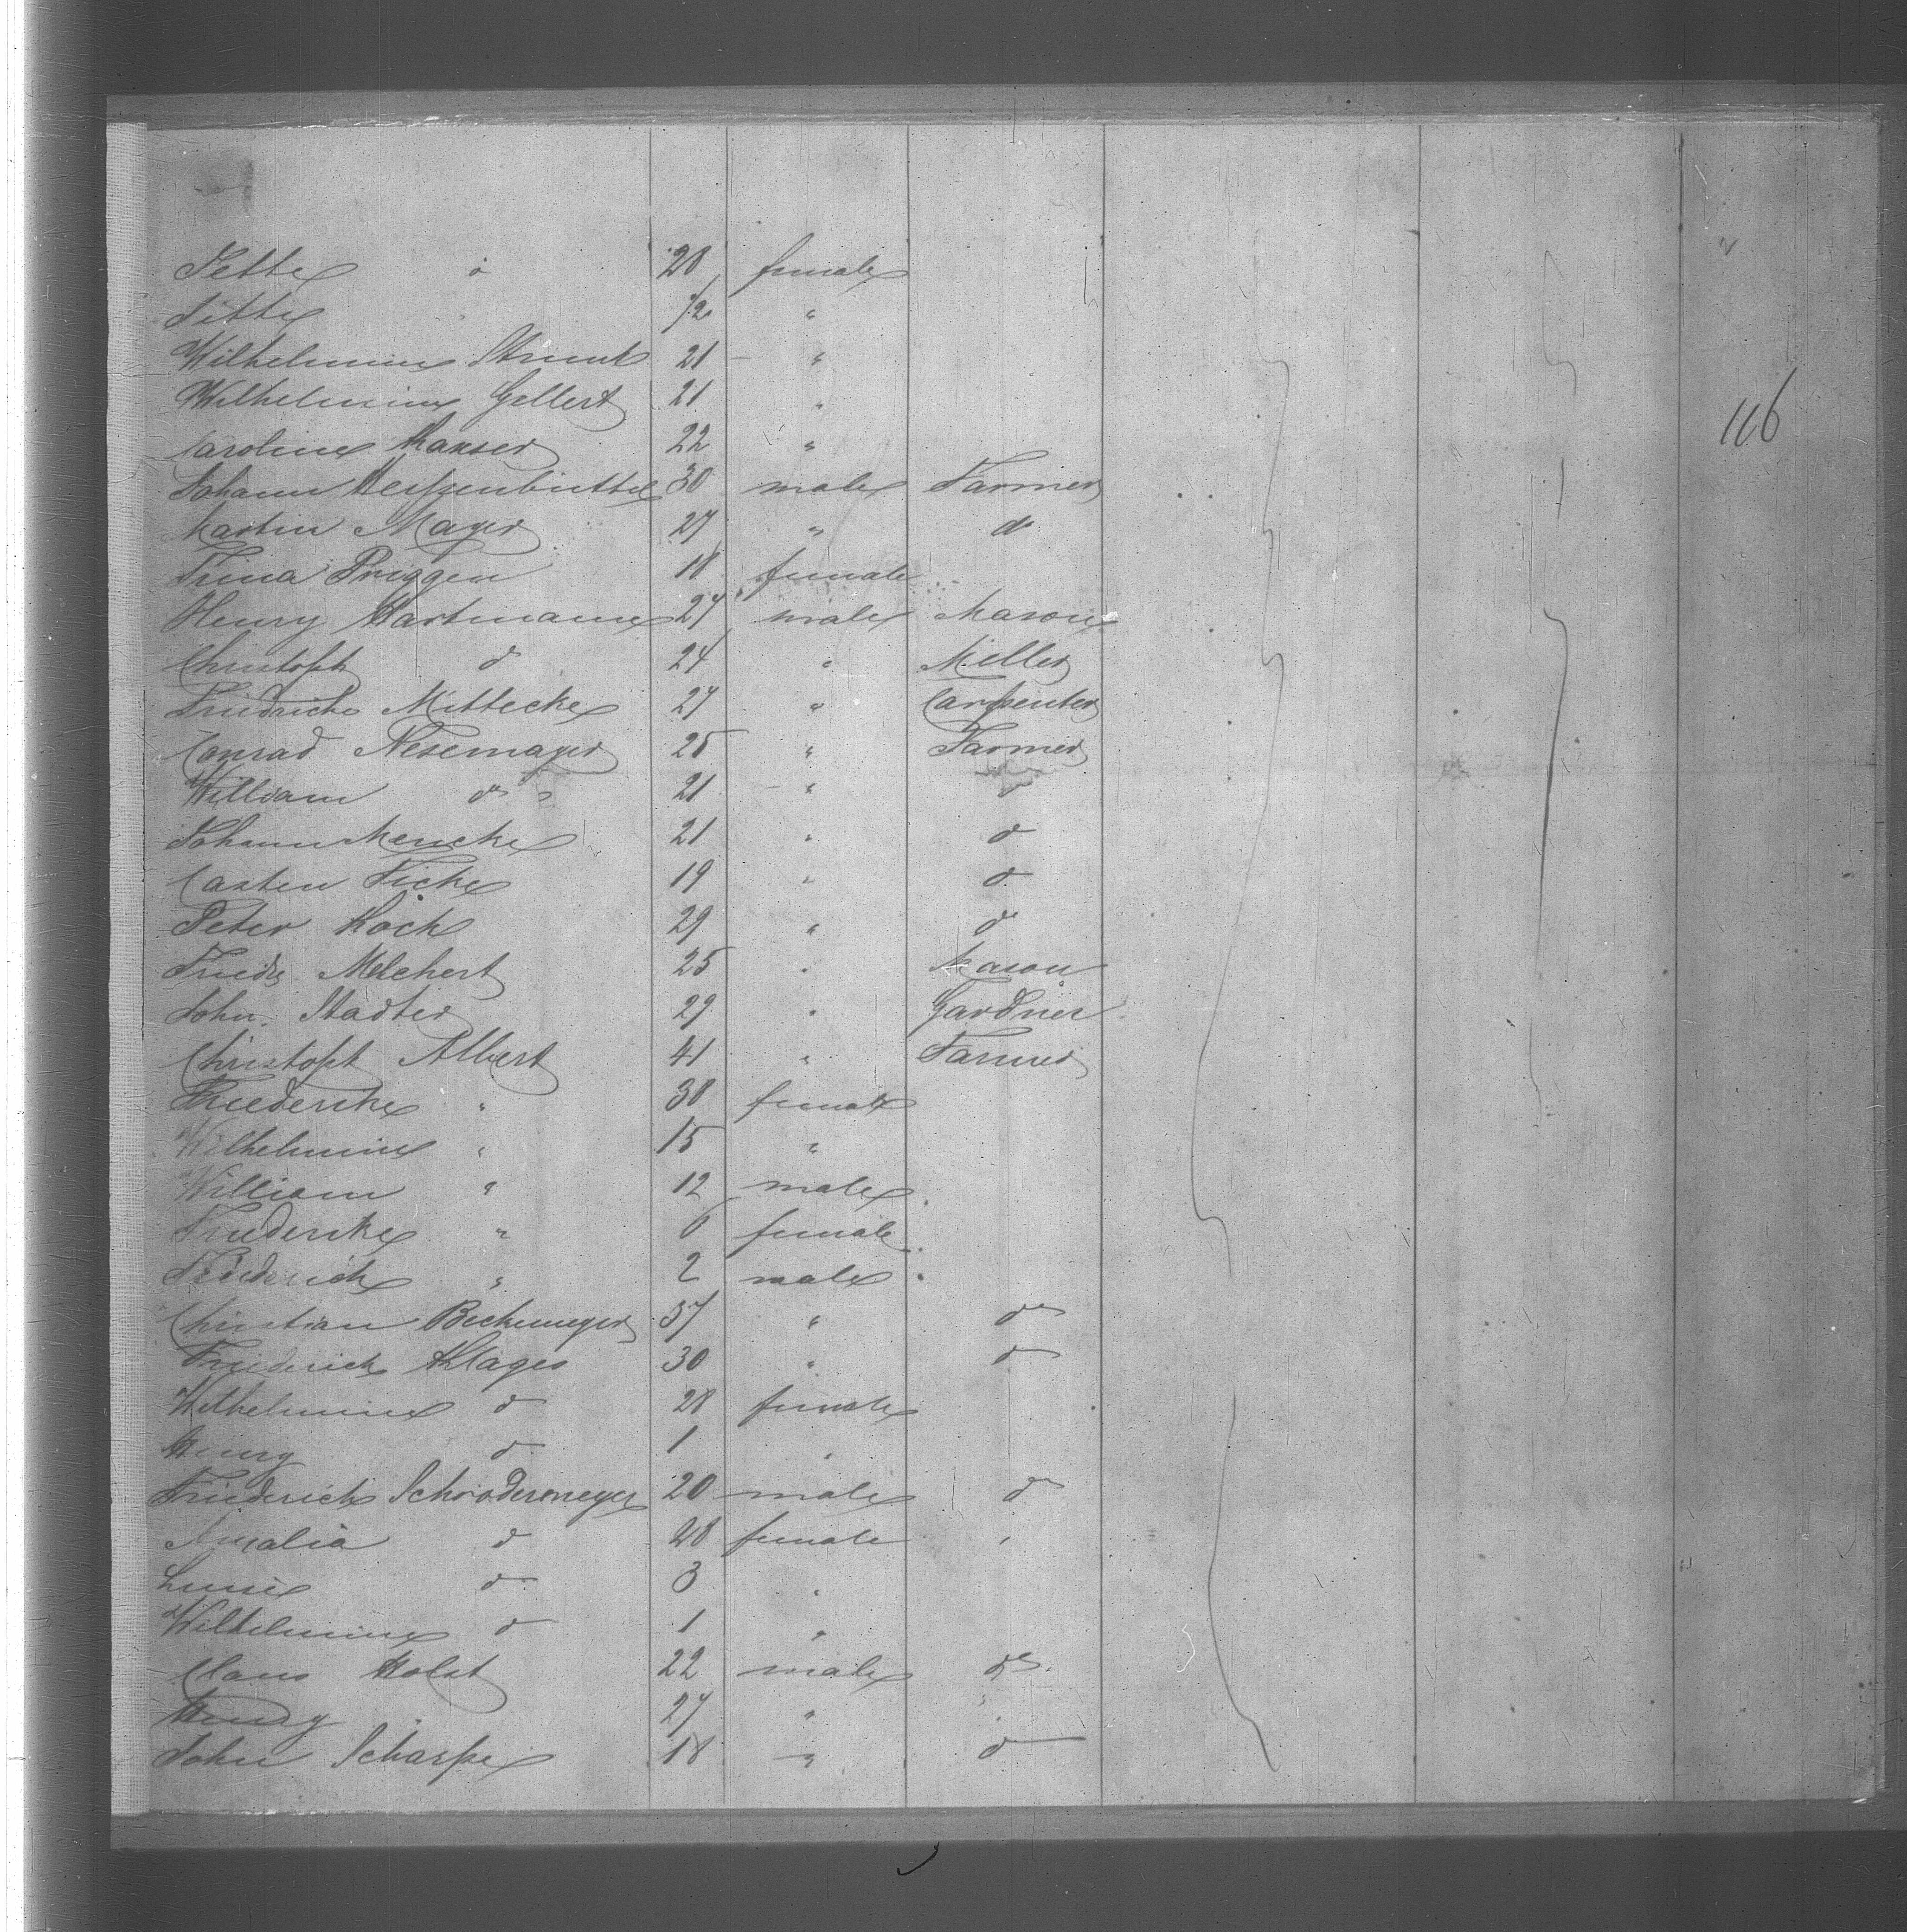 Jette do 28 female
Jette 1/2 "
Wilhelmine Strunk 21 "
Wilhelmine Gellert 21 "
Caroline Kanser 22 "
Johann Heissenbüttel 30 male Farmer
Martin Mayer 27 " do
Trina Priggen 18 female
Henry Hartmann 27 male Mason
Christoph do 24 " Miller
Friedrich Mittecke 27 " Carpenter
Conrad Nesemayer 25 " Farmer
William do 21 " do
Johann Mencke 21 " do
Carsten Ficke 19 " do
Peter Koch 29 " do
Friedr. Melchert 25 " Mason
John Stadter 29 " Gardner
Christoph Albert 41 " Farmer
Friederike " 38 female
Wilhelmine " 15 "
William " 12 male
Friederike " 6 female
Friederich " 2 male
Christian Beckemeyer 57 " do
Friederich Klages 30 " do
Wilhelmine do 28 female
Henry do 1 "
Friederich Schrodermeyer 20 male do
Amalia do 28 female
Luise do 3 "
Wilhelmine do 1 "
Claus Holst 22 male do
Henry 27 "
John Scharpe 18 " do
116